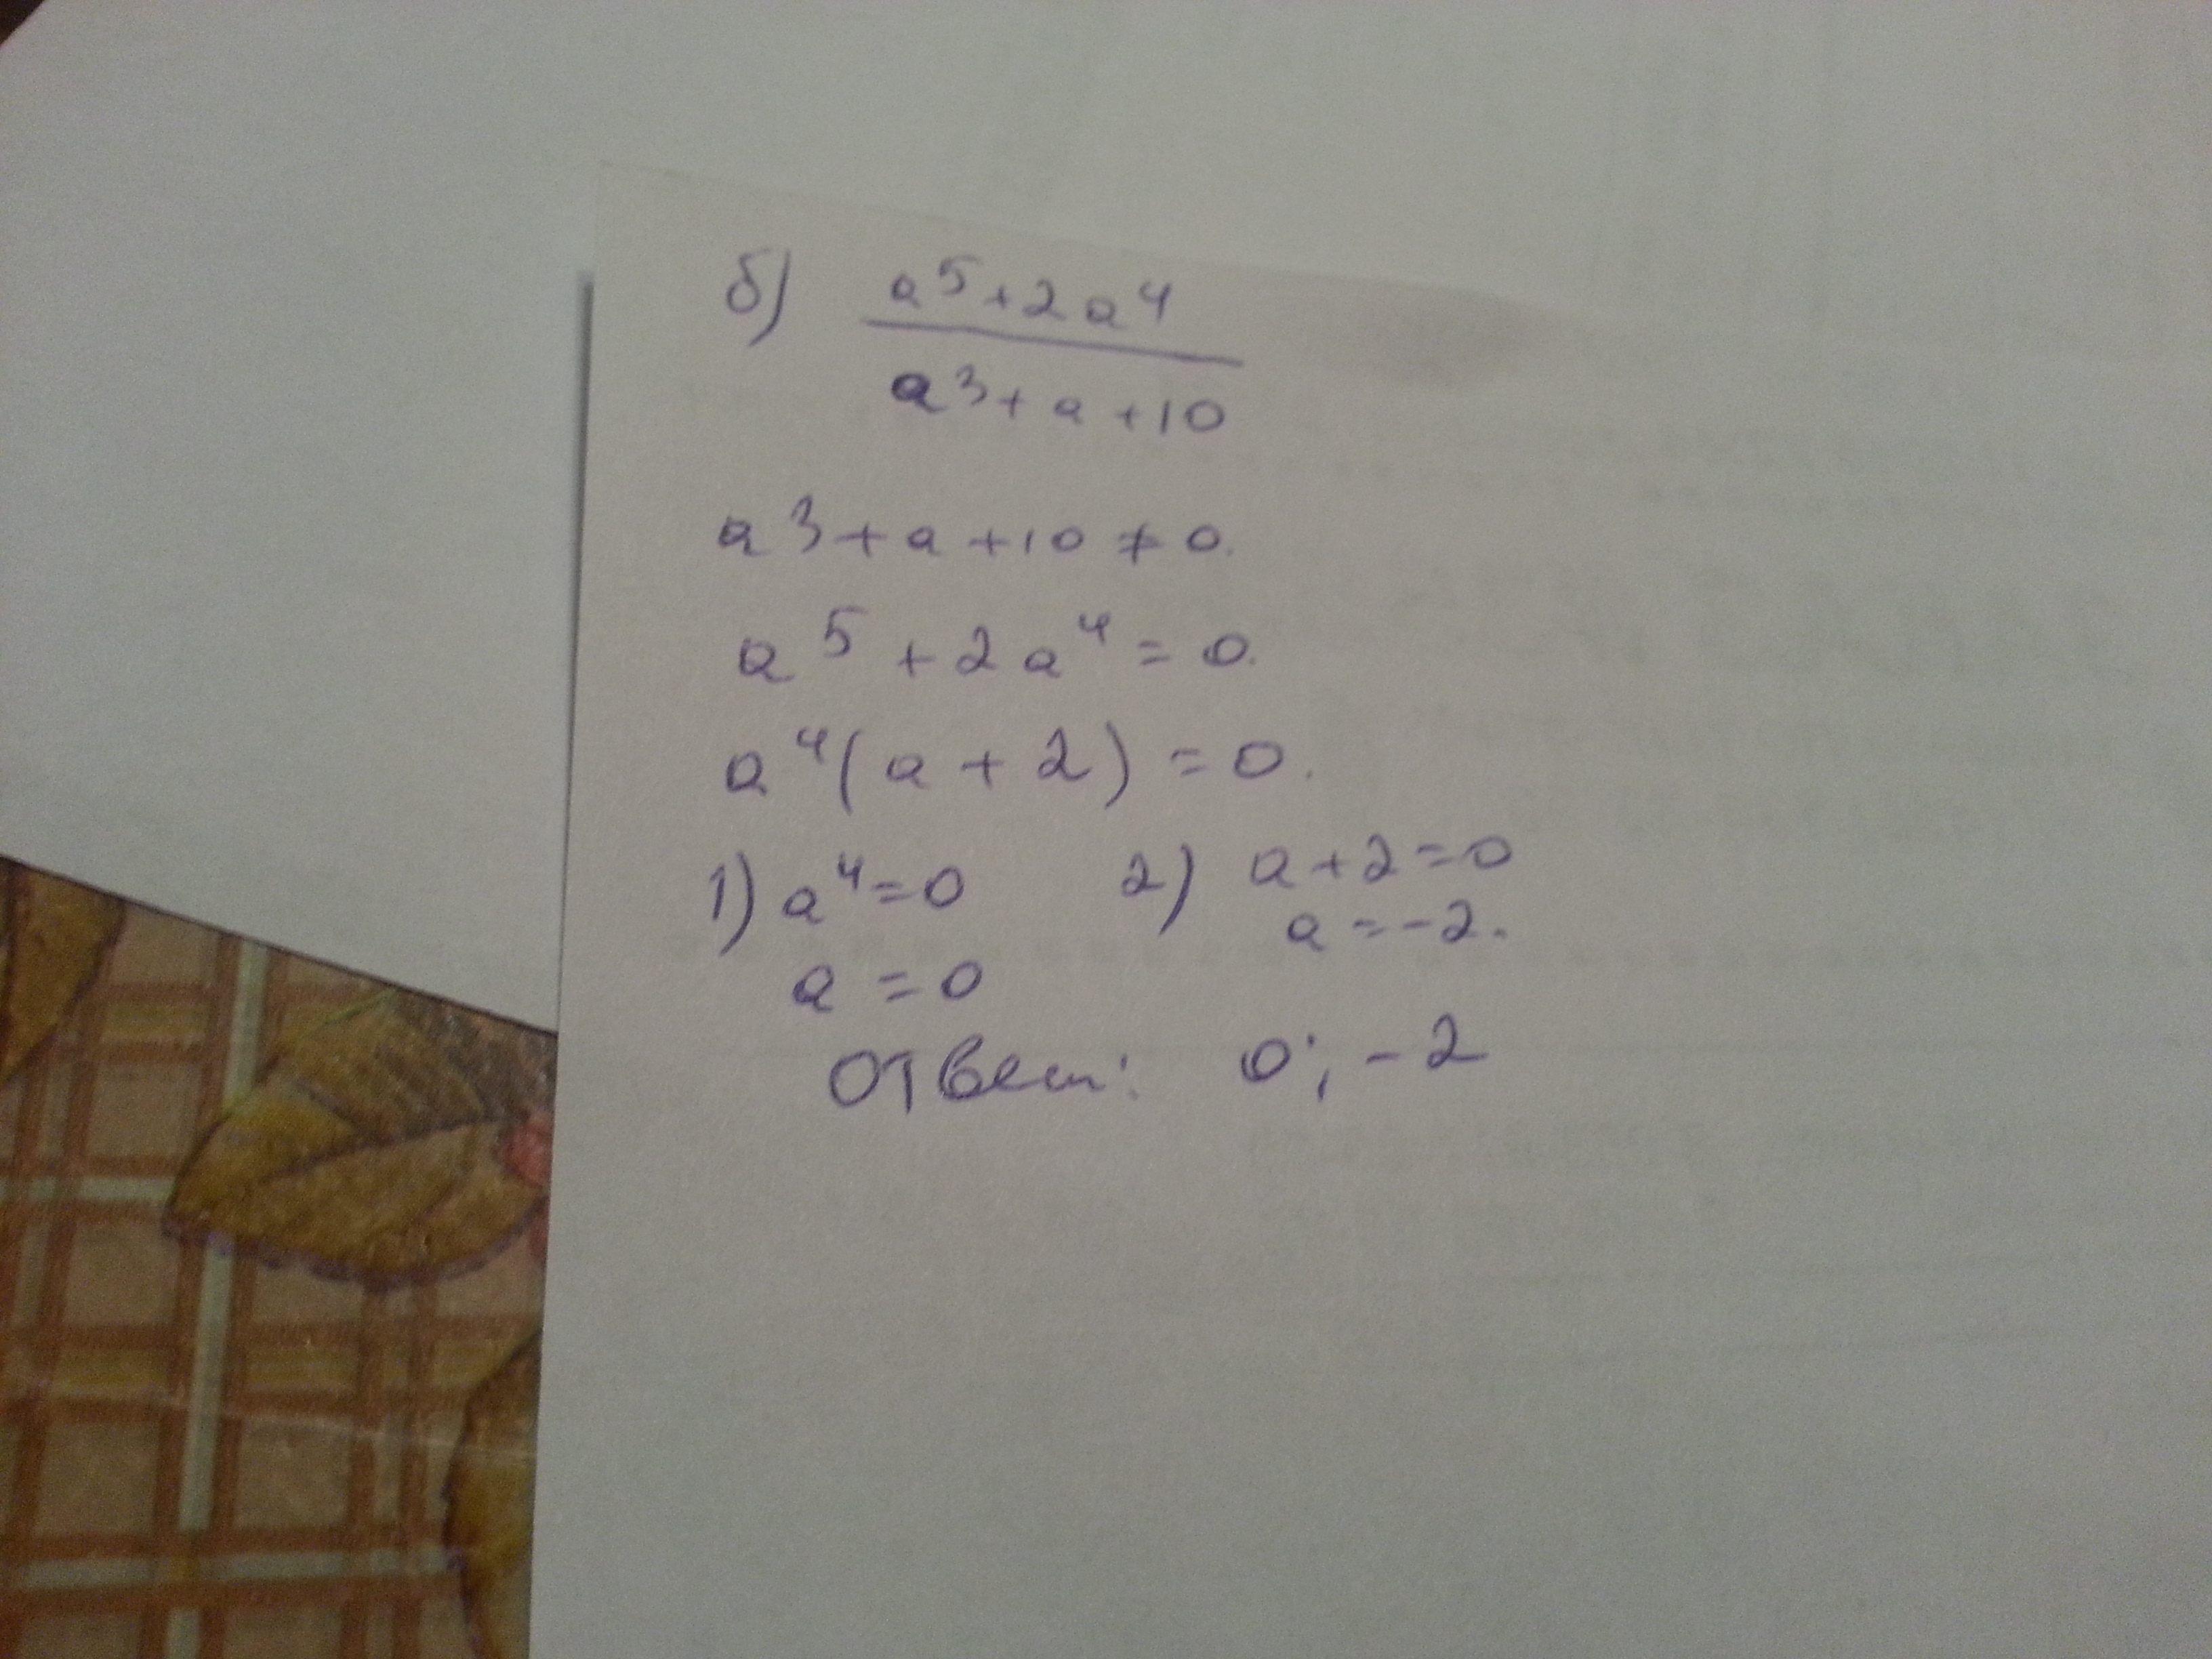 б) a⁵+2a⁴
a³+a+10
a³+a+10≠0.
a⁵+2a⁴=0.
a⁴(a+2)=0.
1) a⁴=0 2) a+2=0
a=-2.
a=0
Ответ: 0; -2